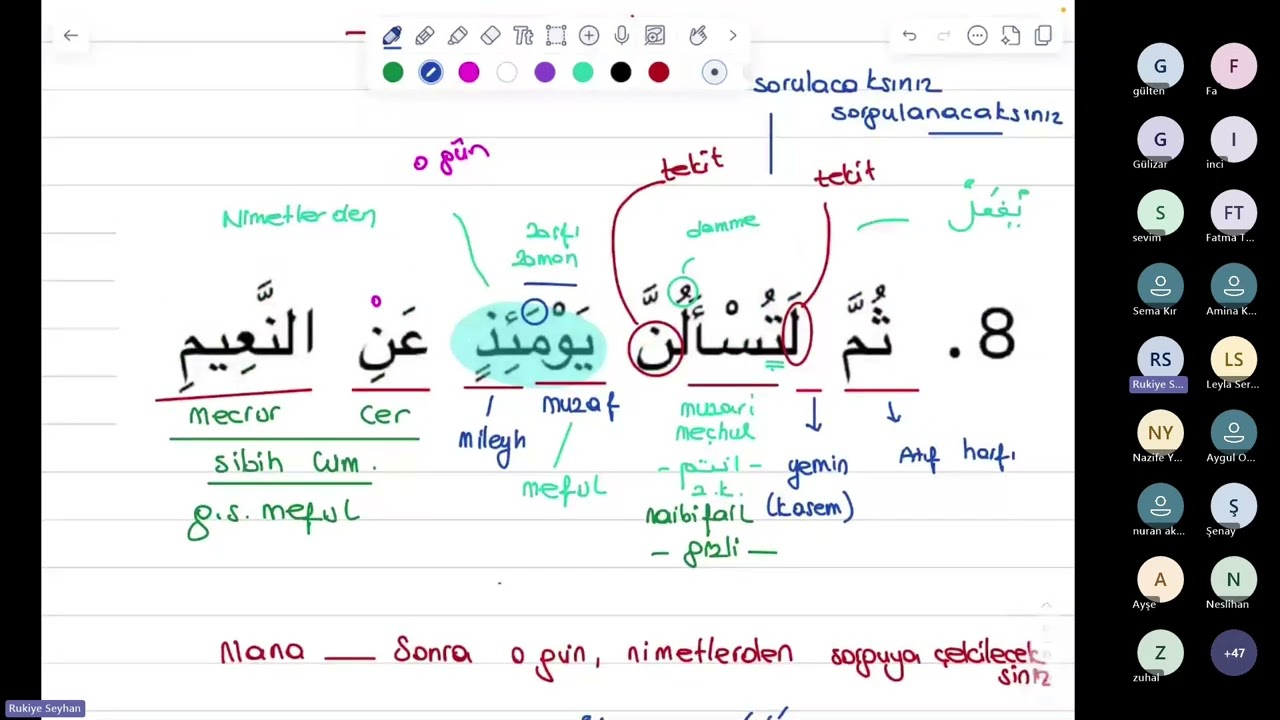 Tt
sorulacaksınız
sorgulanacaksınız
o gün
tekit
tekit
Nimetlerden
zarfı
zaman
damme
8. ثُمَّ لَتُسْأَلُنَّ يَوْمَئِذٍ عَنِ النَّعِيمِ
mecrur
cer
mileyh
muzaf
muzari
meçhul
sibih cum.
g.s. meful
meful
- انتم -
2.k.
naibifail
- gizli -
yemin
(kasem)
Atıf harfı
Mana — Sonra o gün, nimetlerden sorguya çekilecek
siniz
G
gülten
F
Fa
G
Gülizar
I
inci
S
sevim
FT
Fatma T...
Sema Kır
Amina K...
RS
Rukiye S...
LS
Leyla Ser...
NY
Nazife Y...
Aygul O...
nuran ak...
Ş
Şenay
A
Ayşe
N
Neslihan
Z
zuhal
+47
Rukiye Seyhan